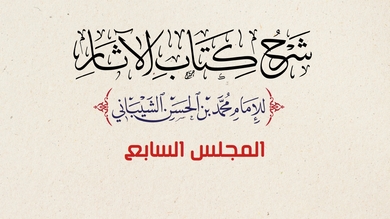 شَرْحُ كِتَابِ الآثَارِ
لِلإِمَامِ مُحَمَّدِ بْنِ الْحَسَنِ الشَّيْبَانِي
المجلس السابع